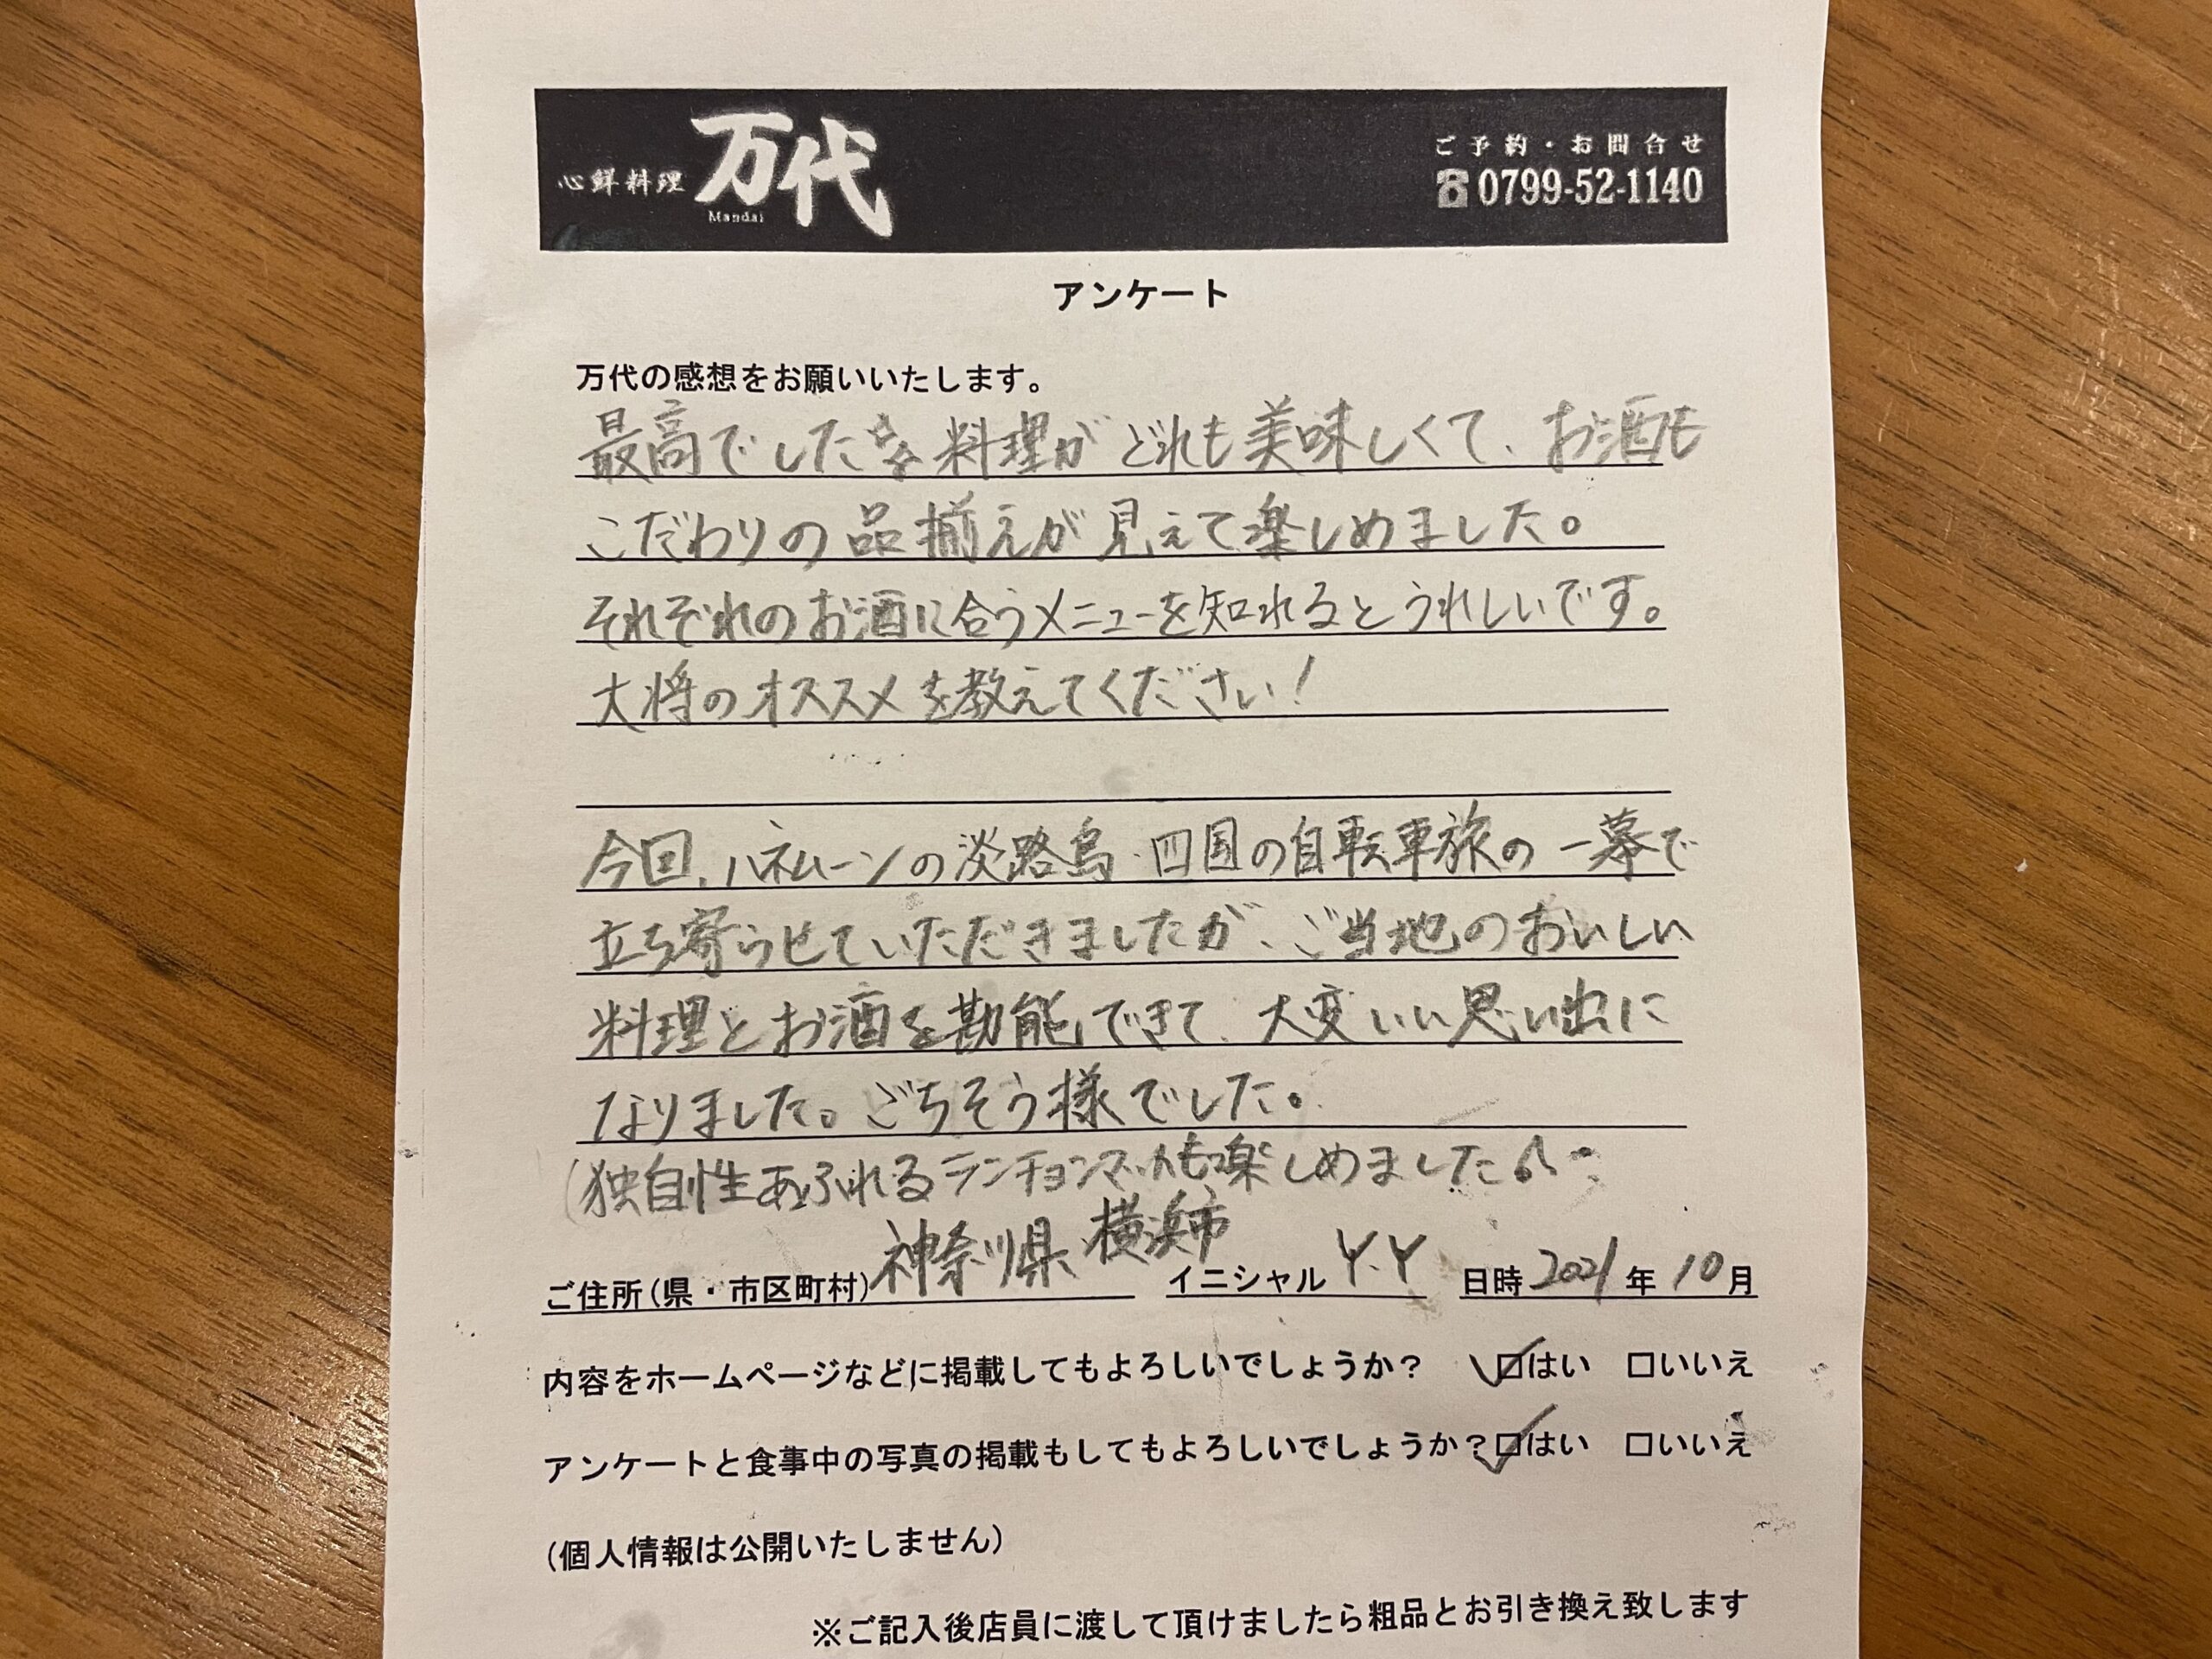 心鮮料理 万代
Mandai
ご予約・お問合せ
☎0799-52-1140
アンケート
万代の感想をお願いいたします。
最高でした☆☆料理がどれも美味しくて、お酒も
こだわりの品揃えが見えて楽しめました。
それぞれのお酒に合うメニューを知れるとうれしいです。
大将のオススメを教えてください!
今回、ハネムーンの淡路島・四国の自転車旅の一幕で
立ち寄らせていただきましたが、ご当地のおいしい
料理とお酒を勘能できて、大変いい思い出に
なりました。ごちそう様でした。
(独自性あふれるランチョンマットも楽しめました♪
ご住所(県・市区町村)神奈川県 横浜市 イニシャル Y.Y 日時 2021年 10月
内容をホームページなどに掲載してもよろしいでしょうか? ☑はい □いいえ
アンケートと食事中の写真の掲載もしてもよろしいでしょうか?☑はい □いいえ
(個人情報は公開いたしません)
※ご記入後店員に渡して頂けましたら粗品とお引き換え致します